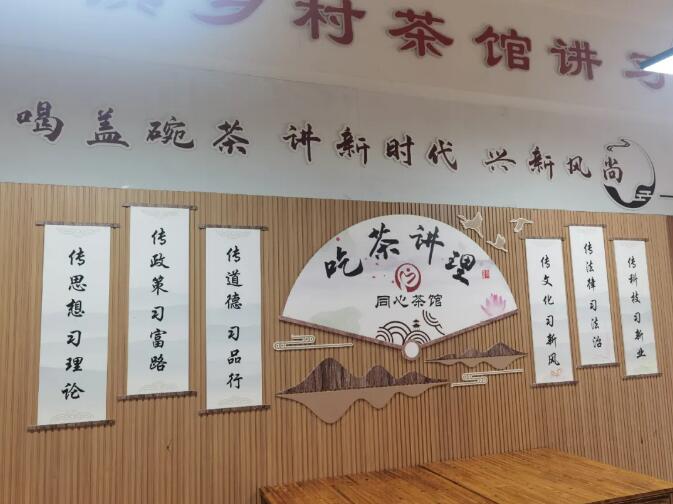 乡村茶馆讲习
喝盖碗茶 讲新时代 兴新风尚
传思想 习理论
传政策 习富路
传道德 习品行
吃茶讲理
同心茶馆
传文化 习新风
传法律 习法治
传科技 习新业